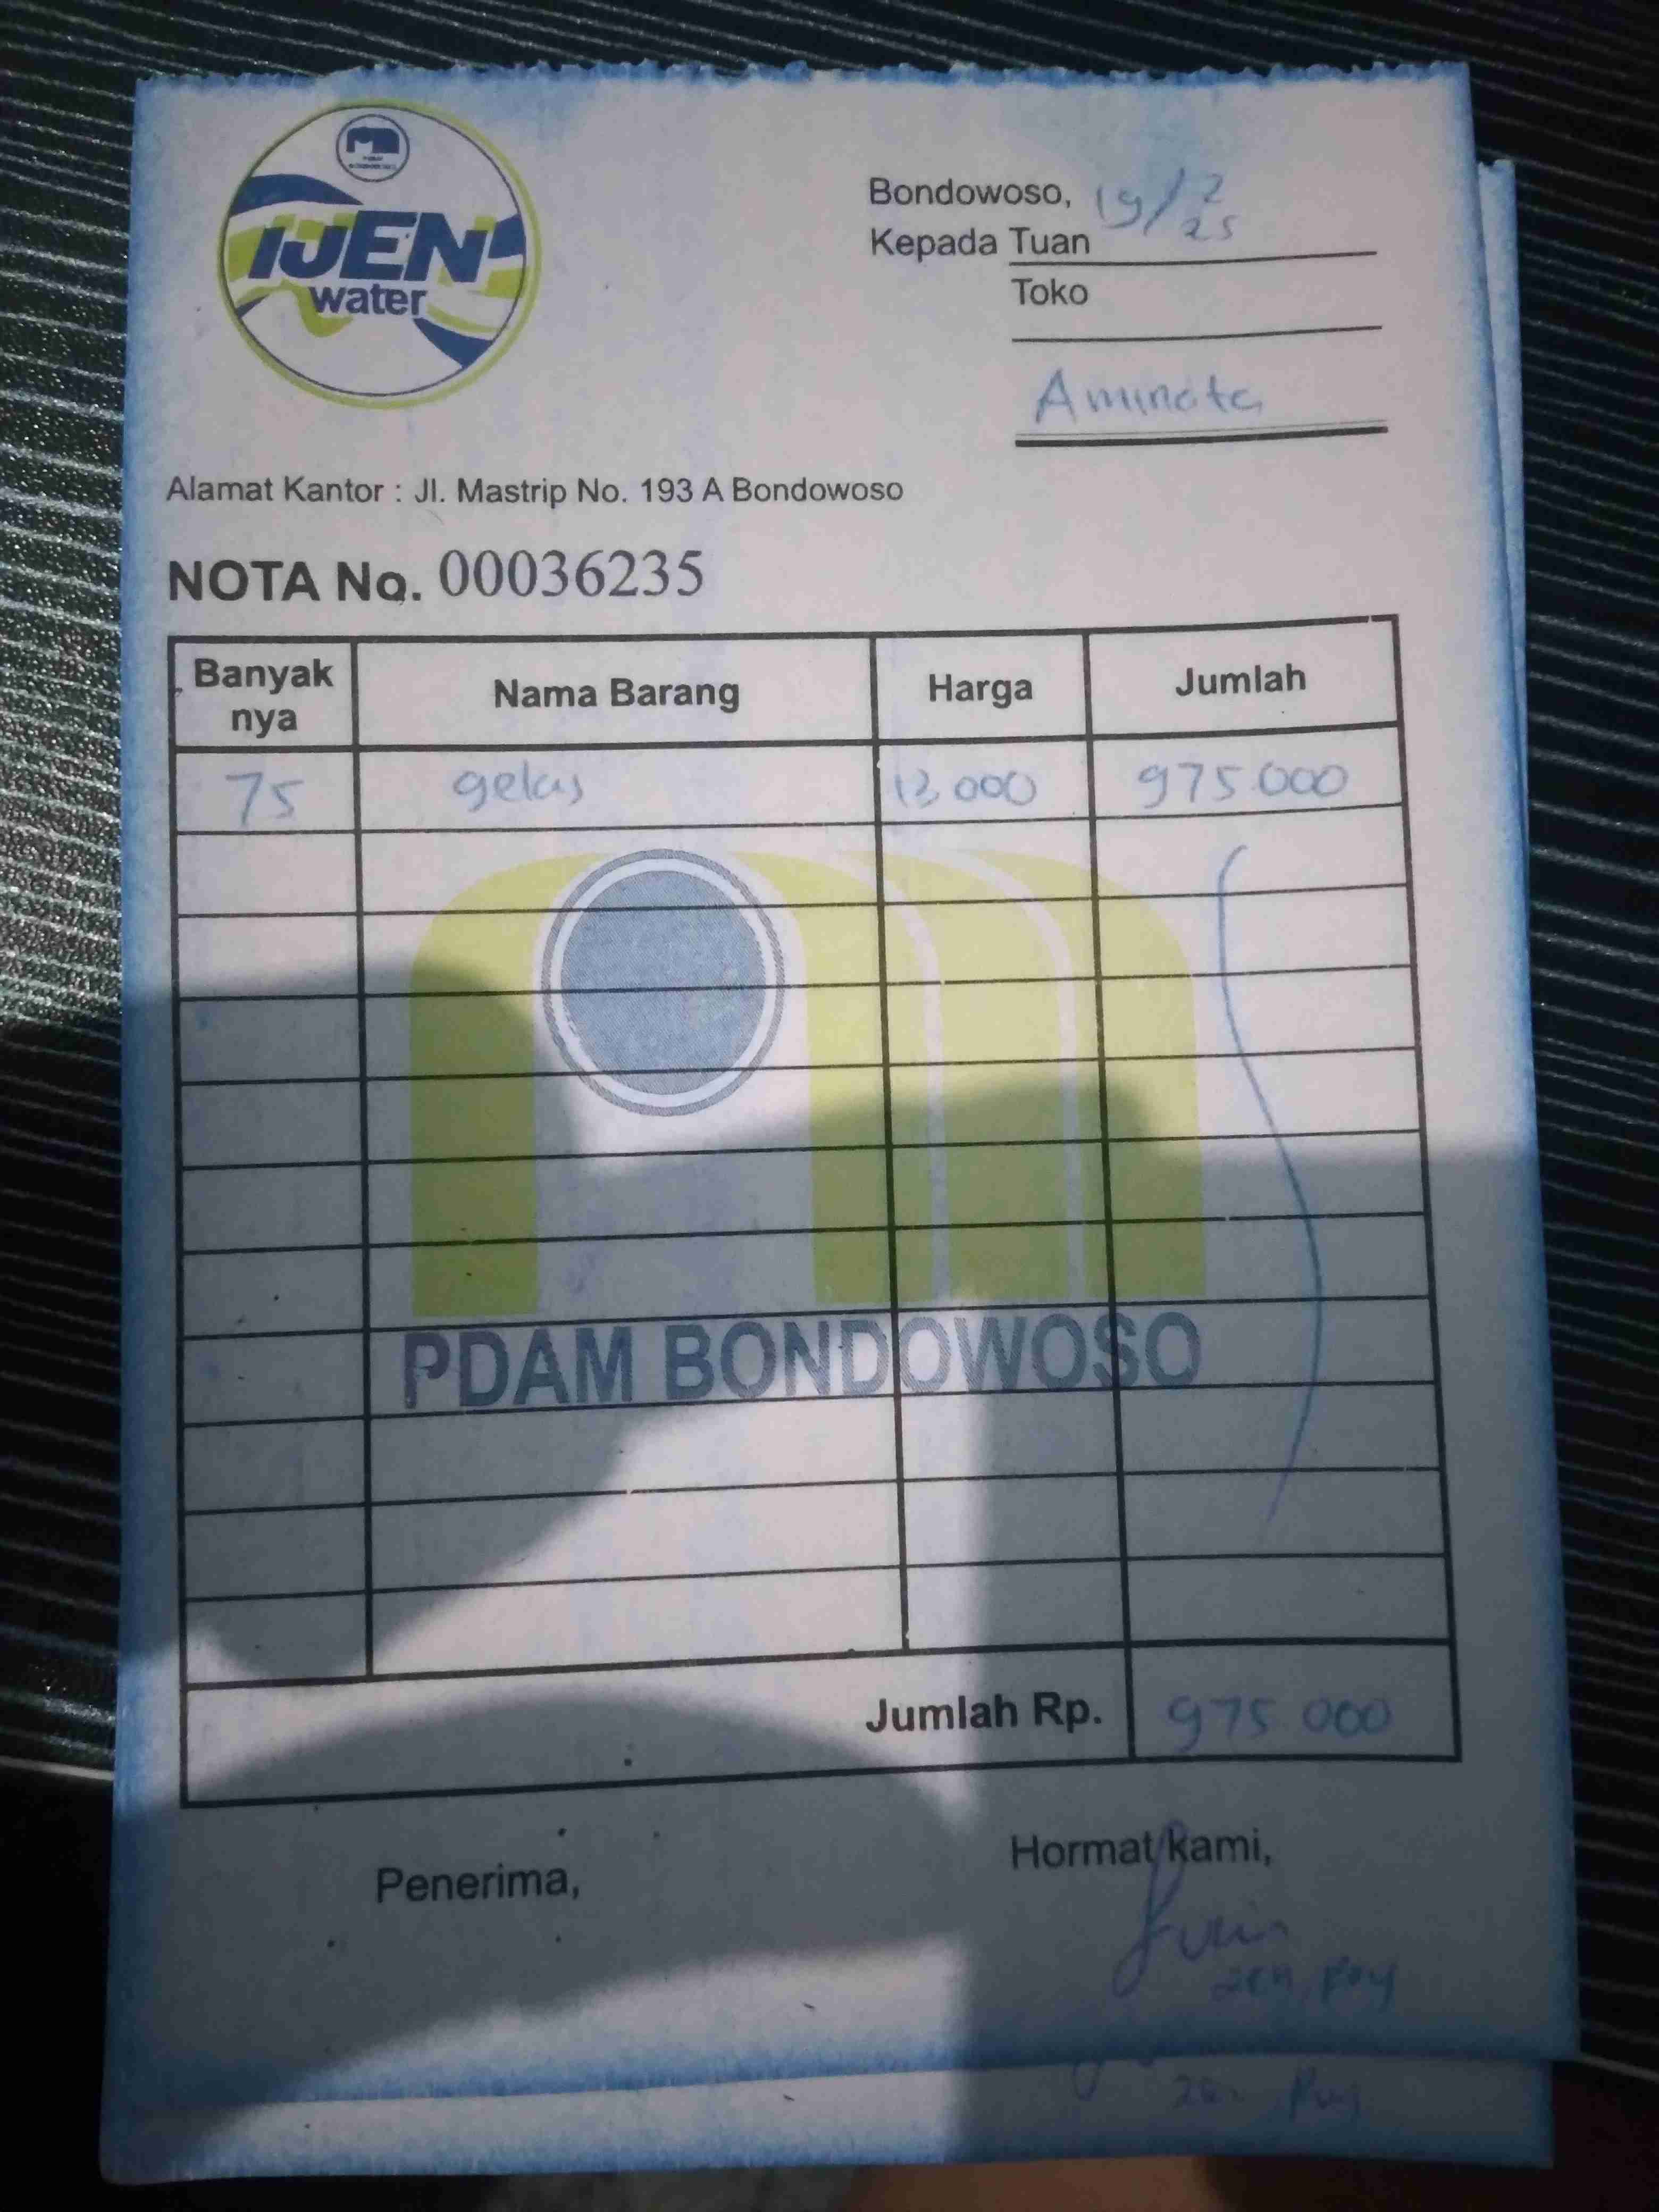 IJEN
water
Bondowoso, 19/2 25
Kepada Tuan
Toko
Aminata
Alamat Kantor : Jl. Mastrip No. 193 A Bondowoso
NOTA No. 00036235
Banyak nya Nama Barang Harga Jumlah
75 gelas 13.000 975.000
PDAM BONDOWOSO
Jumlah Rp. 975 000
Penerima, Hormat kami,